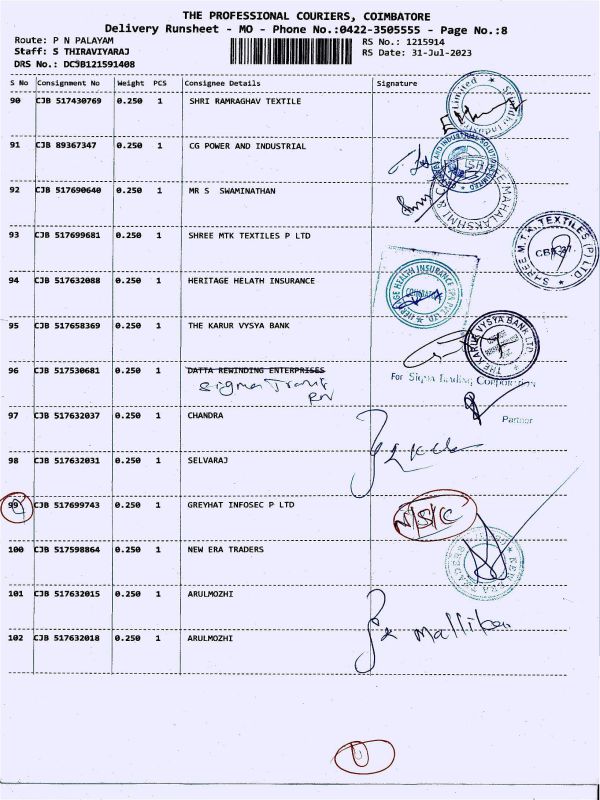 THE PROFESSIONAL COURIERS, COIMBATORE
Delivery Runsheet - MO - Phone No.:0422-3505555 - Page No.:8
Route: P N PALAYAM
Staff: S THIRAVIYARAJ
DRS No.: DCJB121591408
RS No.: 1215914
RS Date: 31-Jul-2023
S No Consignment No Weight PCS Consignee Details Signature
90 CJB 517430769 0.250 1 SHRI RAMRAGHAV TEXTILE
91 CJB 89367347 0.250 1 CG POWER AND INDUSTRIAL
92 CJB 517690640 0.250 1 MR S SWAMINATHAN
MAHALAKSHMI &
93 CJB 517699681 0.250 1 SHREE MTK TEXTILES P LTD
SHREE M.T.K. TEXTILES (P) LTD
94 CJB 517632088 0.250 1 HERITAGE HELATH INSURANCE
95 CJB 517658369 0.250 1 THE KARUR VYSYA BANK
THE KARUR VYSYA BANK LTD
96 CJB 517530681 0.250 1 DATTA REWINDING ENTERPRISES
For Sigma Trading Corporation
Partner
97 CJB 517632037 0.250 1 CHANDRA
98 CJB 517632031 0.250 1 SELVARAJ
99 CJB 517699743 0.250 1 GREYHAT INFOSEC P LTD
N/S/C
100 CJB 517598864 0.250 1 NEW ERA TRADERS
NEW ERA TRADERS
101 CJB 517632015 0.250 1 ARULMOZHI
102 CJB 517632018 0.250 1 ARULMOZHI